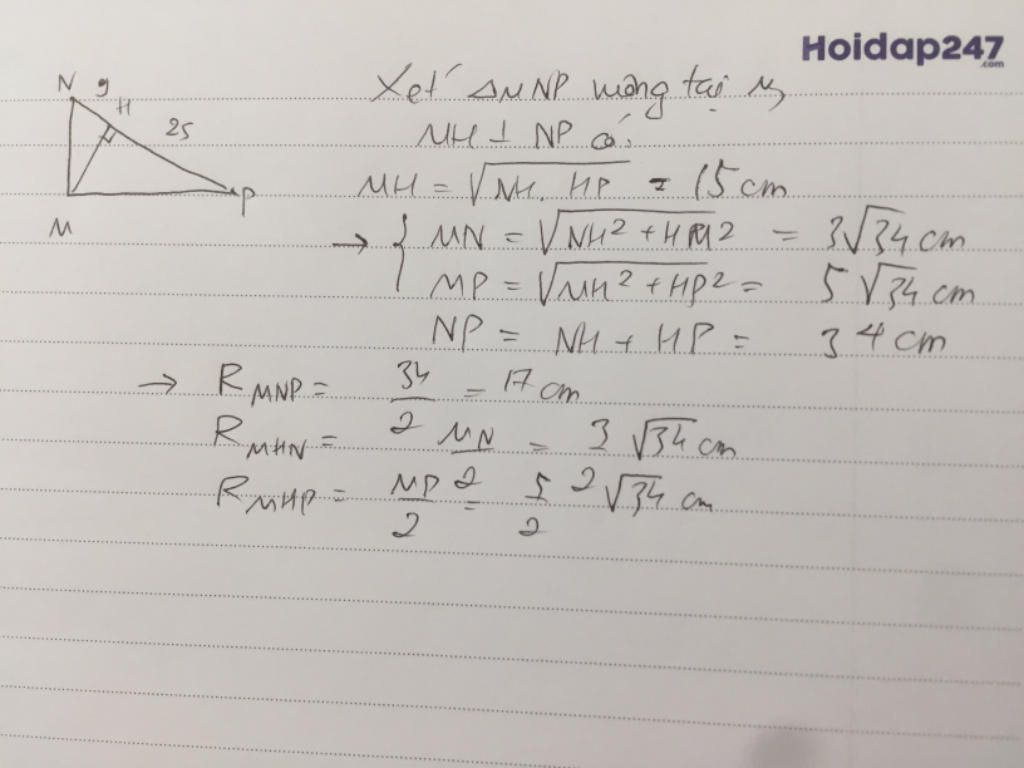 Hoidap247
.com
N 9
H
25
P
M
Xét ΔMNP vuông tại M,
MH ⊥ NP có:
MH = √NH. HP = 15 cm
→ { MN = √NH² + HM² = 3√34 cm
MP = √MH² + HP² = 5√34 cm
NP = NH + HP = 34 cm
→ R MNP = 34/2 = 17 cm
R MHN = MN/2 = 3/2 √34 cm
R MHP = MP/2 = 5/2 √34 cm